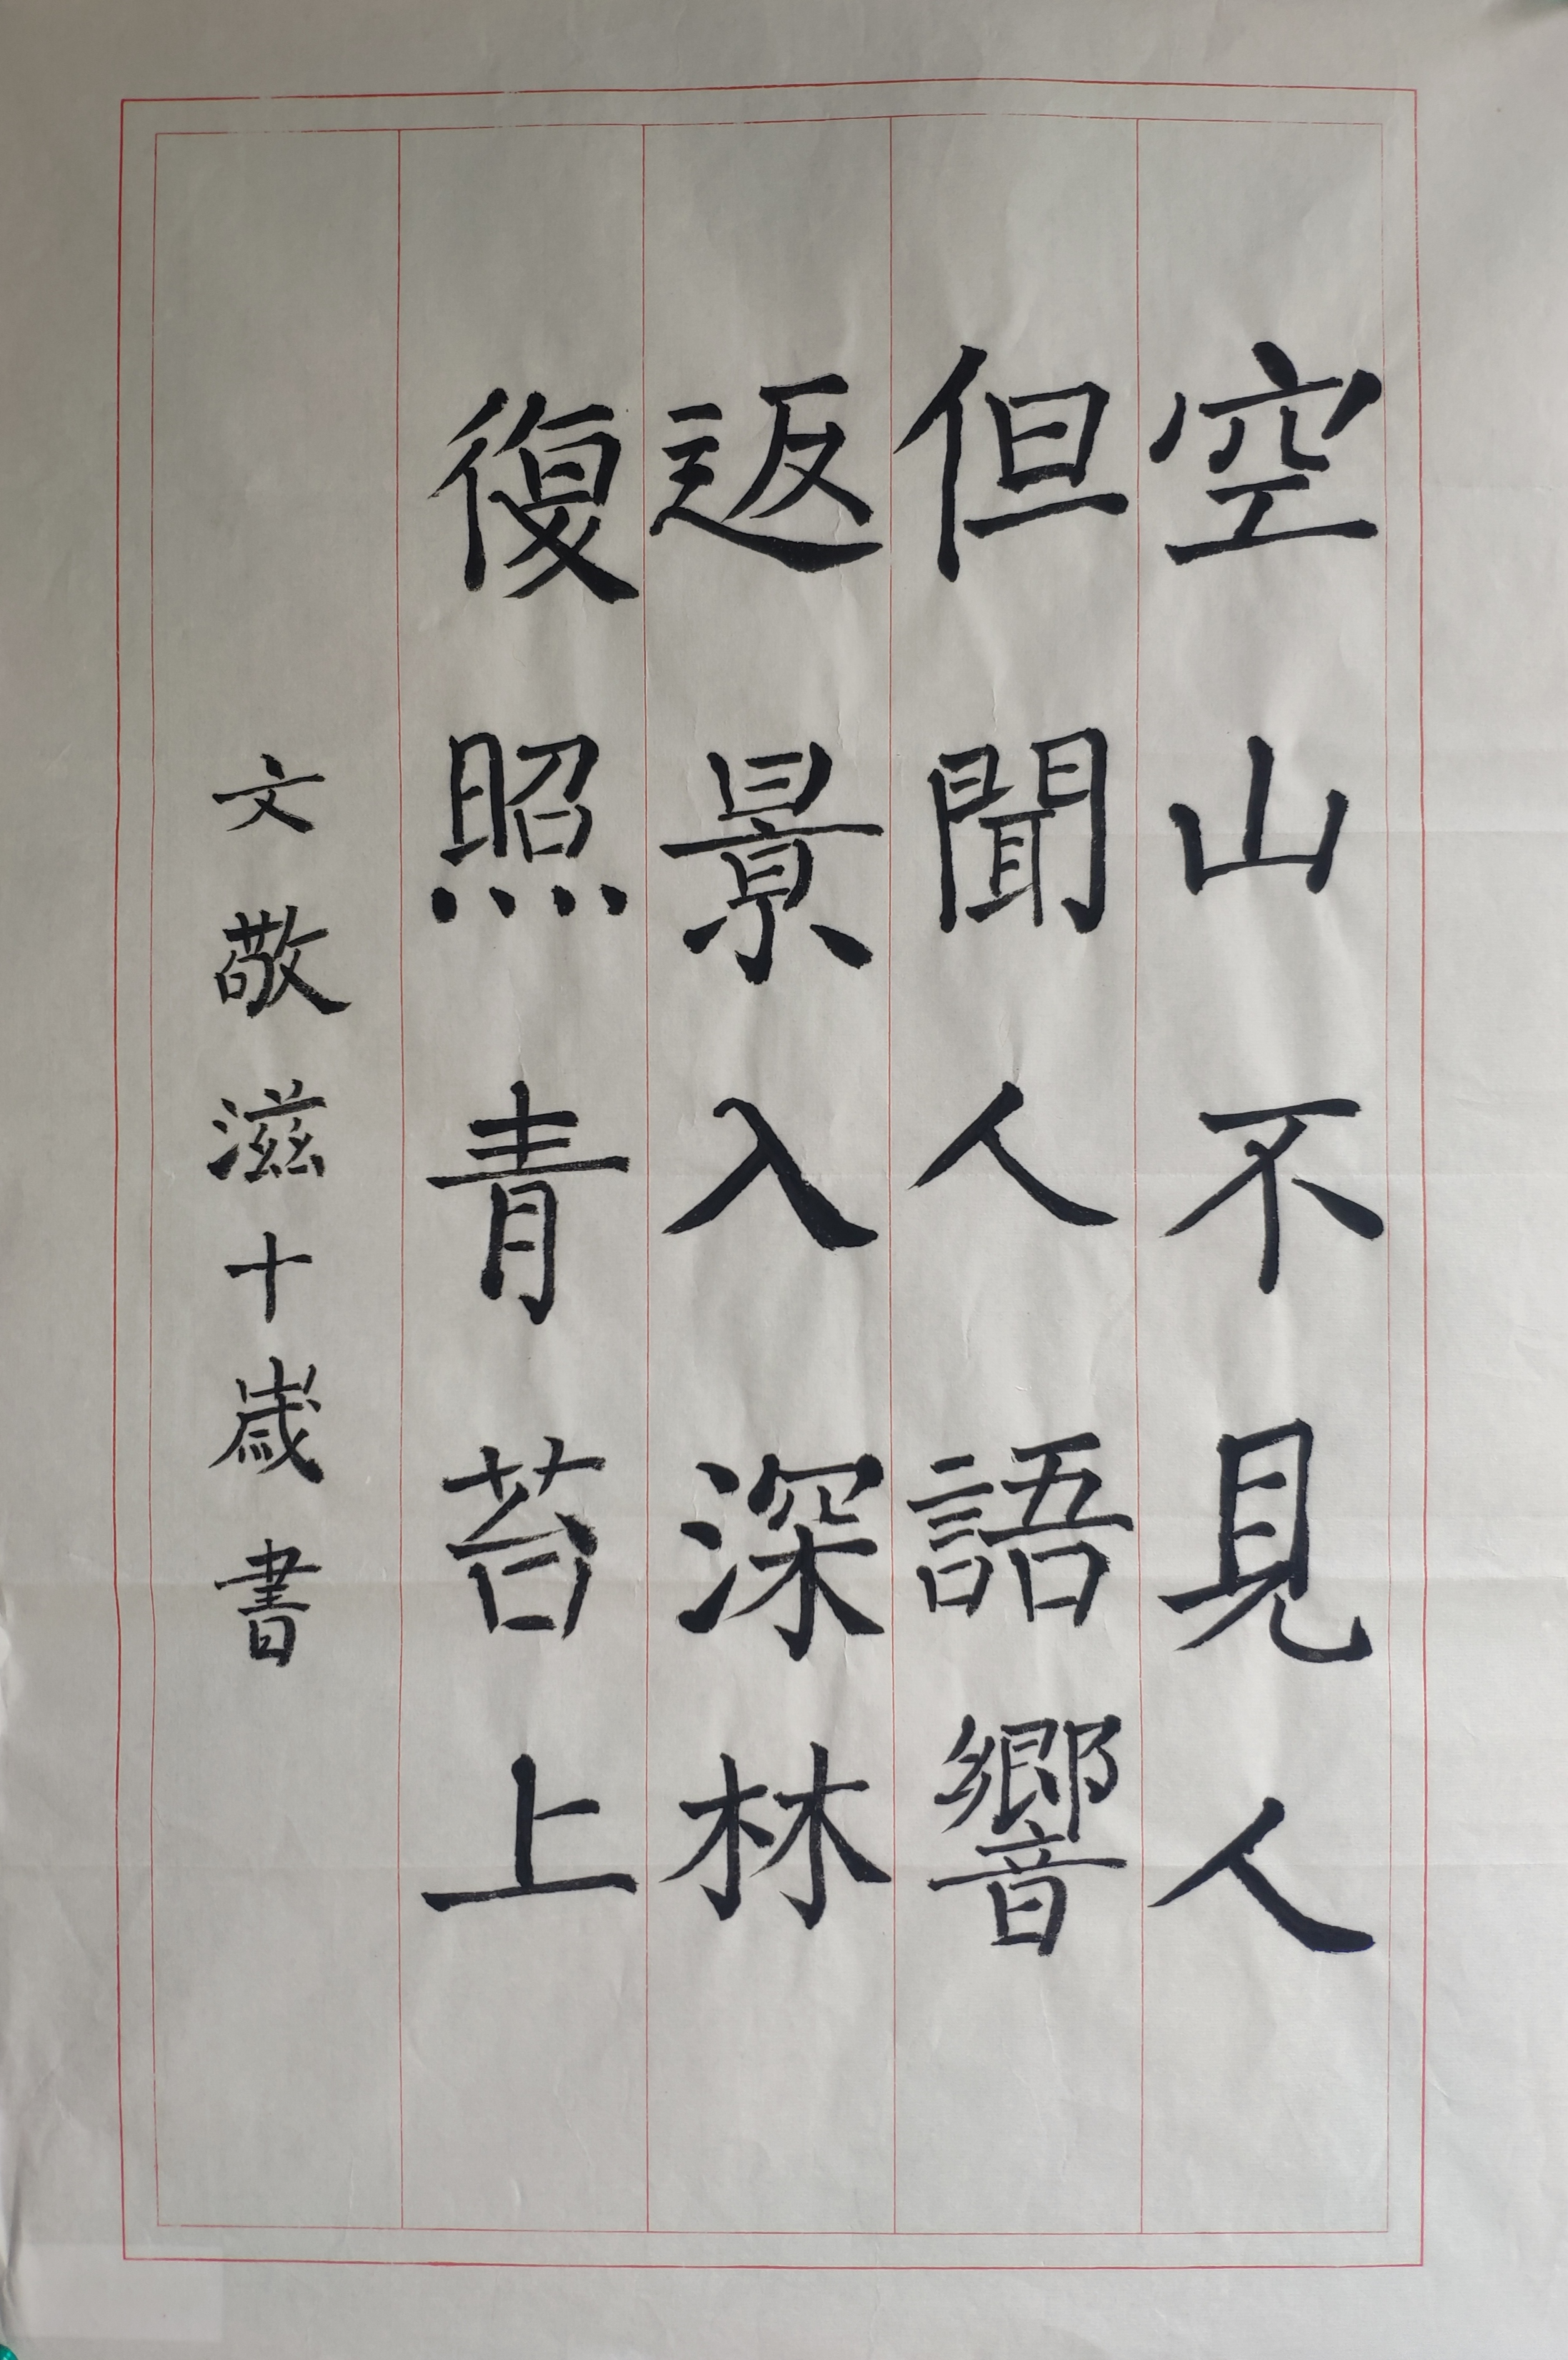 空山不見人
但聞人語響
返景入深林
復照青苔上
文敬滋十歲書